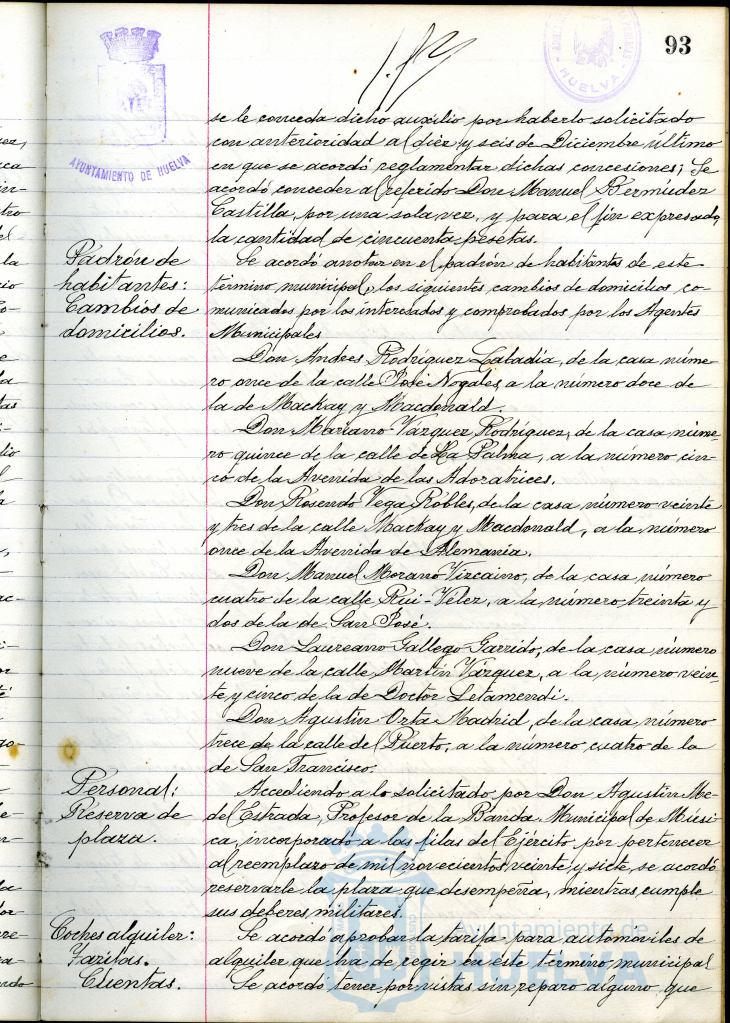 93
AYUNTAMIENTO DE HUELVA
HUELVA
se le conceda dicho auxilio por haberlo solicitado
con anterioridad al diez y seis de Diciembre último
en que se acordó reglamentar dichas concesiones; Se
acordó conceder al referido Don Manuel Bermúdez
Castilla, por una sola vez, y para el fin expresado,
la cantidad de cincuenta pesetas.
Padrón de
habitantes:
Cambios de
domicilios.
Se acordó anotar en el padrón de habitantes de este
término municipal, los siguientes cambios de domicilios co-
municados por los interesados y comprobados por los Agentes
Municipales
Don Andres Rodríguez Labadía, de la casa núme-
ro once de la calle José Nogales, a la número doce de
la de Mackay y Macdonald.
Don Mariano Vazquez Rodríguez, de la casa núme-
ro quince de la calle de La Palma, a la número cin-
co de la Avenida de las Adoratrices.
Don Rosendo Vega Robles, de la casa número veinte
y tres de la calle Mackay y Macdonald, a la número
once de la Avenida de Alemania.
Don Manuel Morano Vizcaino, de la casa número
cuatro de la calle Rui-Velez, a la número treinta y
dos de la de San José.
Don Laureano Gallego Garrido, de la casa número
nueve de la calle Martín Vázquez, a la número vein-
te y cinco de la de Doctor Letamendi.
Don Agustin Orta Madrid, de la casa número
trece de la calle del Puerto, a la número cuatro de la
de San Francisco.
Personal:
Reserva de
plaza.
Accediendo a lo solicitado por Don Agustín Me-
del Estrada, Profesor de la Banda Municipal de Músi-
ca, incorporado a las filas del Ejército por pertenecer
al reemplazo de mil novecientos veinte y siete, se acordó
reservarle la plaza que desempeña, mientras cumple
sus deberes militares.
Coches alquiler:
Tarifas.
Se acordó aprobar la tarifa para automóviles de
alquiler que ha de regir en este término municipal
Cuentas.
Se acordó tener por vistas sin reparo alguno que
Ayuntamiento de
HUELVA